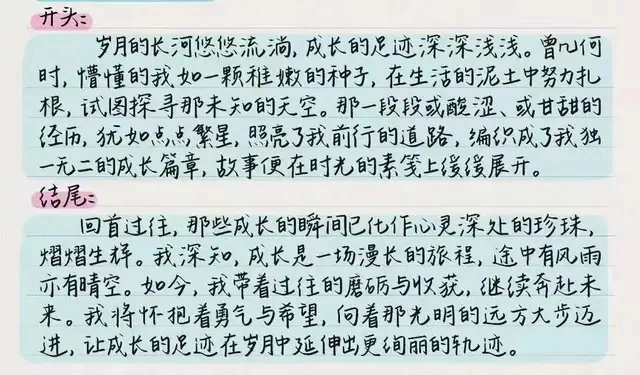 开头:
岁月的长河悠悠流淌,成长的足迹深深浅浅。曾几何
时,懵懂的我如一颗稚嫩的种子,在生活的泥土中努力扎
根,试图探寻那未知的天空。那一段段或酸涩、或甘甜的
经历,犹如点点繁星,照亮了我前行的道路,编织成了我独
一无二的成长篇章,故事便在时光的素笺上缓缓展开。
结尾:
回首过往,那些成长的瞬间已化作心灵深处的珍珠,
熠熠生辉。我深知,成长是一场漫长的旅程,途中有风雨
亦有晴空。如今,我带着过往的磨砺与收获,继续奔赴未
来。我将怀抱着勇气与希望,向着那光明的远方大步迈
进,让成长的足迹在岁月中延伸出更绚丽的轨迹。